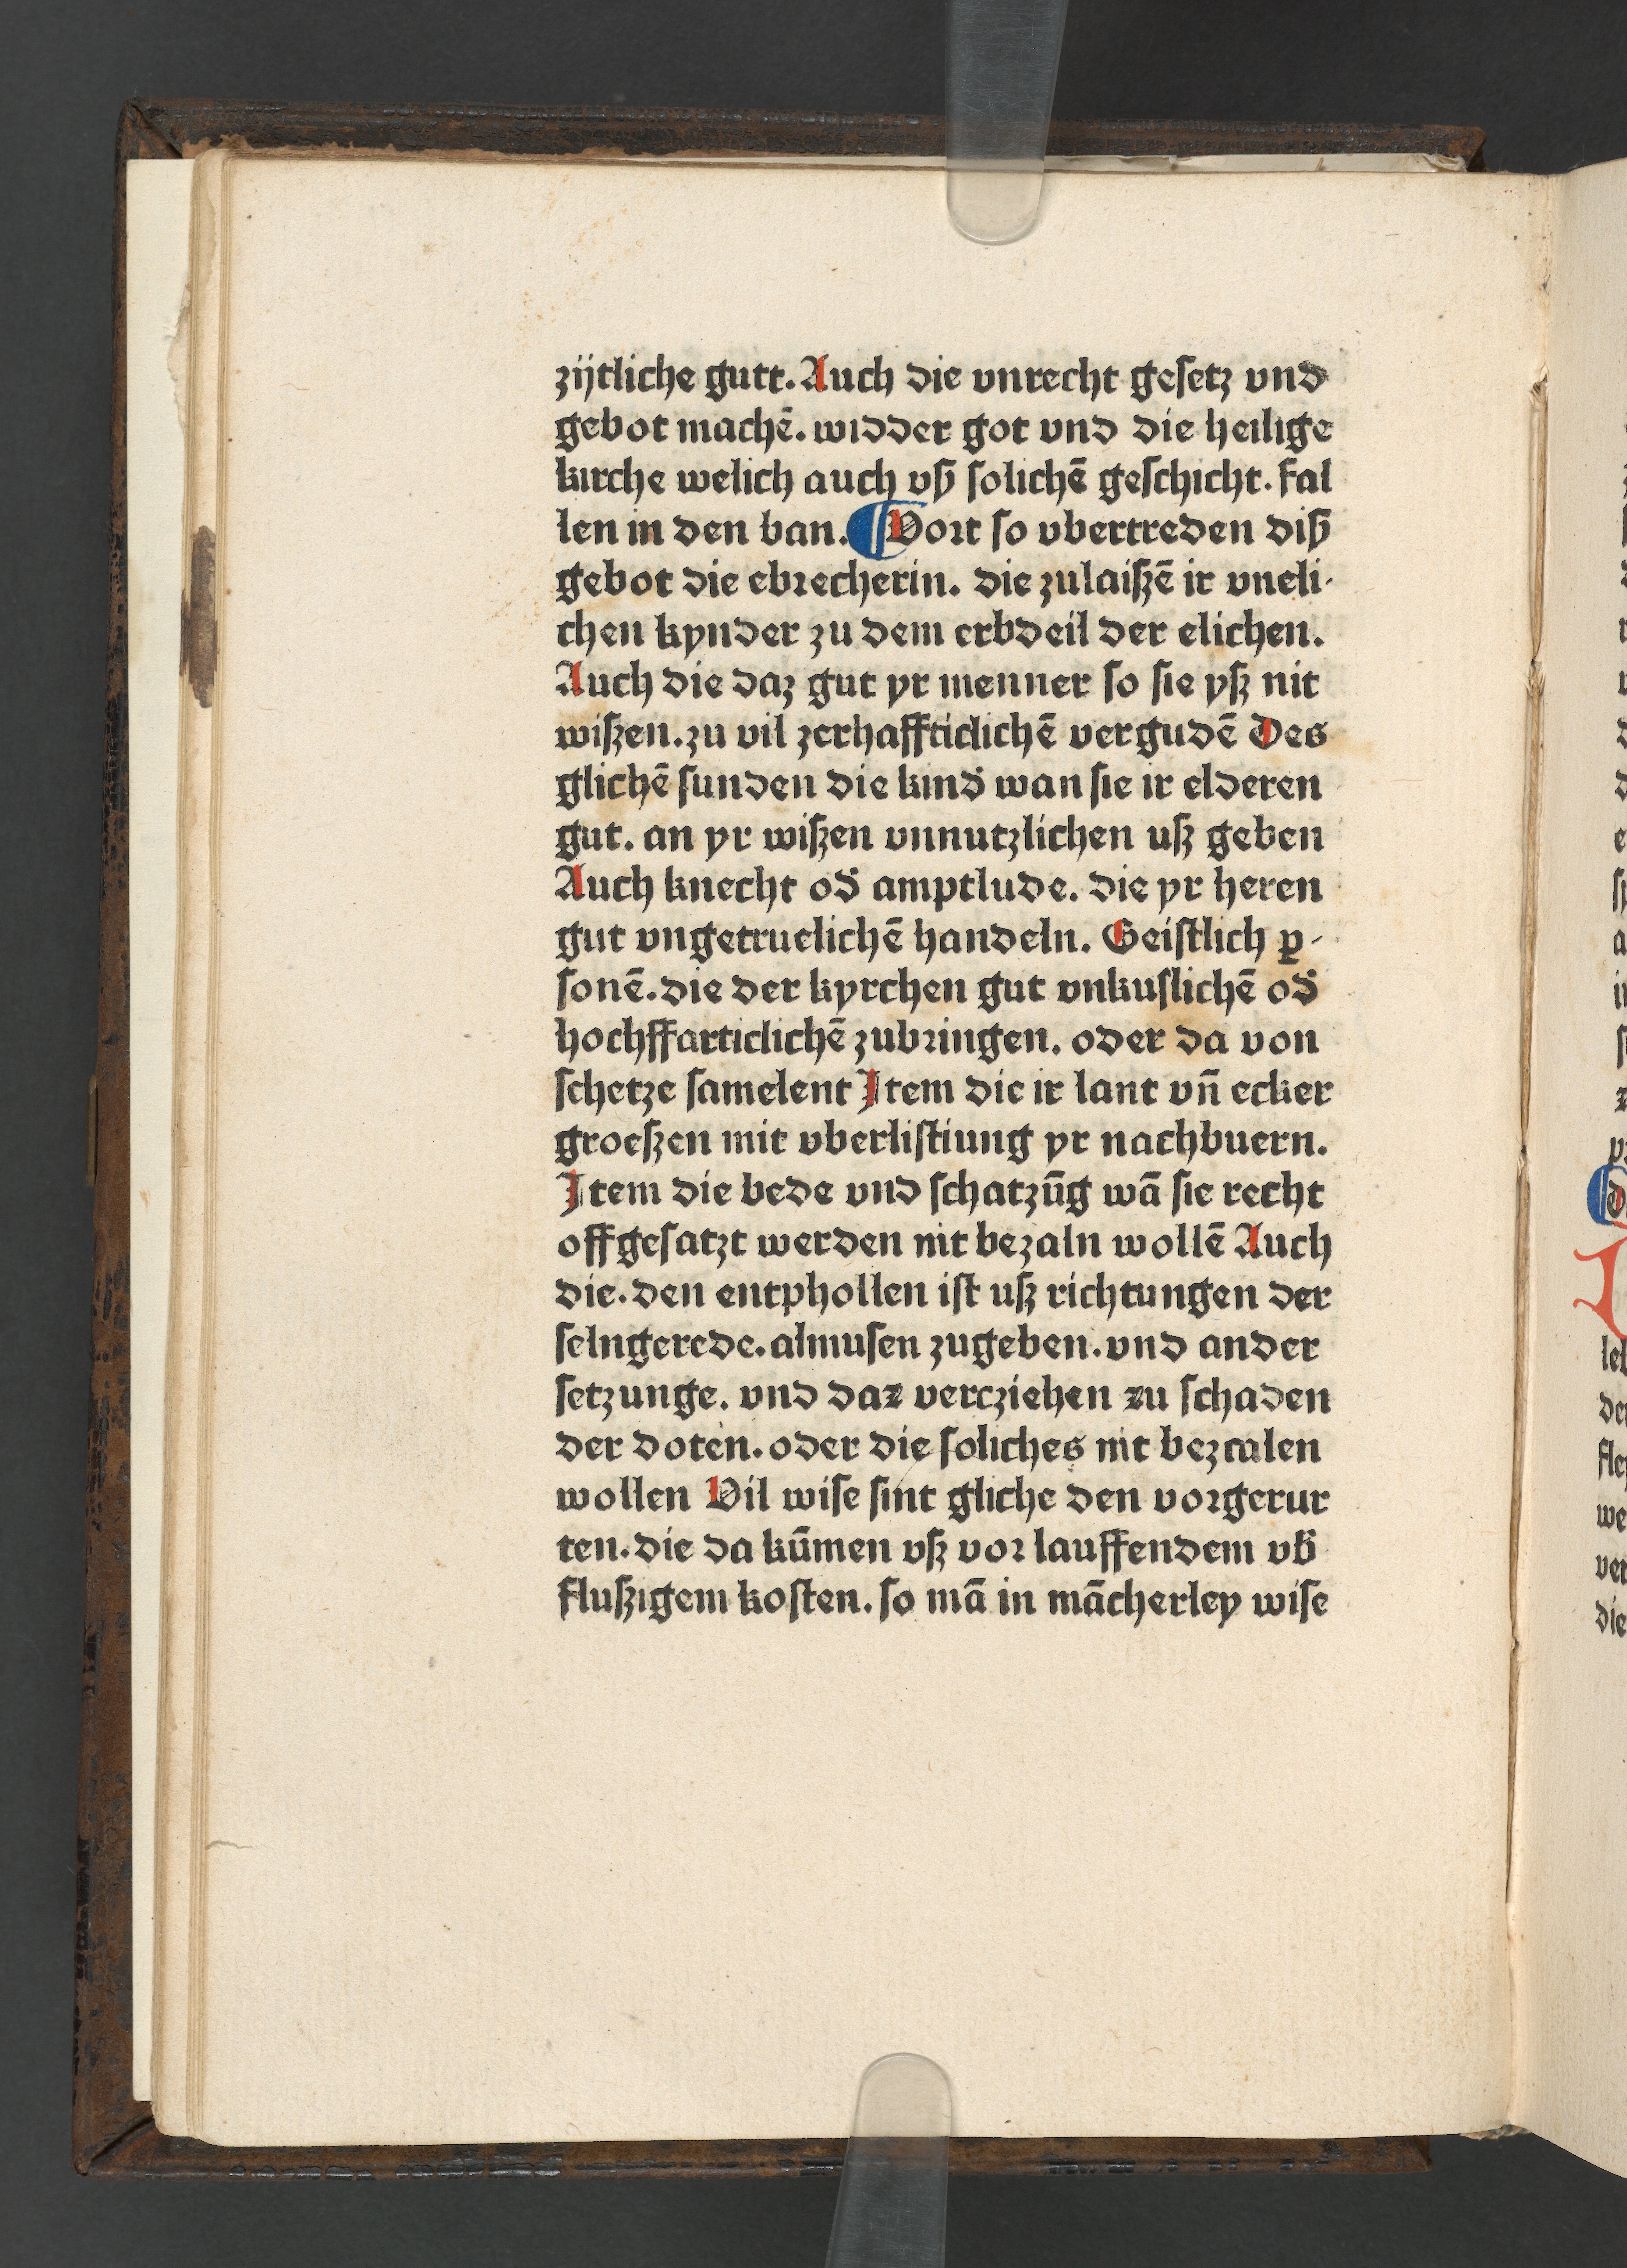 zijtliche gutt. Auch die vnrecht gesetz vnd
gebot machē. widder got vnd die heilige
kirche welich auch vß solichē geschicht. fal
len in den ban. ¶ Vort so vbertreden diß
gebot die ebrecherin. die zulaiszē ir vneli-
chen kynder zu dem erbdeil der elichen.
Auch die daz gut yr menner so sie ysz nit
wiszen. zu vil zerhaffticlichē vergudē Des
glichē sunden die kind̄ wan sie ir elderen
gut. an yr wiszen vnnutzlichen usz geben
Auch knecht od̄ amptlude. die yr heren
gut vngetruelichē handeln. Geistlich ꝑ-
sonē. die der kyrchen gut vnkuslichē od̄
hochffarticlichē zubringen. oder da von
schetze samelent Item die ir lant vn̄ ecker
groeszen mit vberlistiung yr nachbuern.
Item die bede vnd schatzūg wā sie recht
offgesatzt werden nit bezaln wollē Auch
die. den entphollen ist usz richtungen der
selngerede. almusen zugeben. vnd ander
setzunge. vnd daz vercziehen zu schaden
der doten. oder die soliches nit bezcalen
wollen Vil wise sint gliche den vorgerur
ten. die da kūmen vsz vor lauffendem vb̄
fluszigem kosten. so mā in mācherley wise